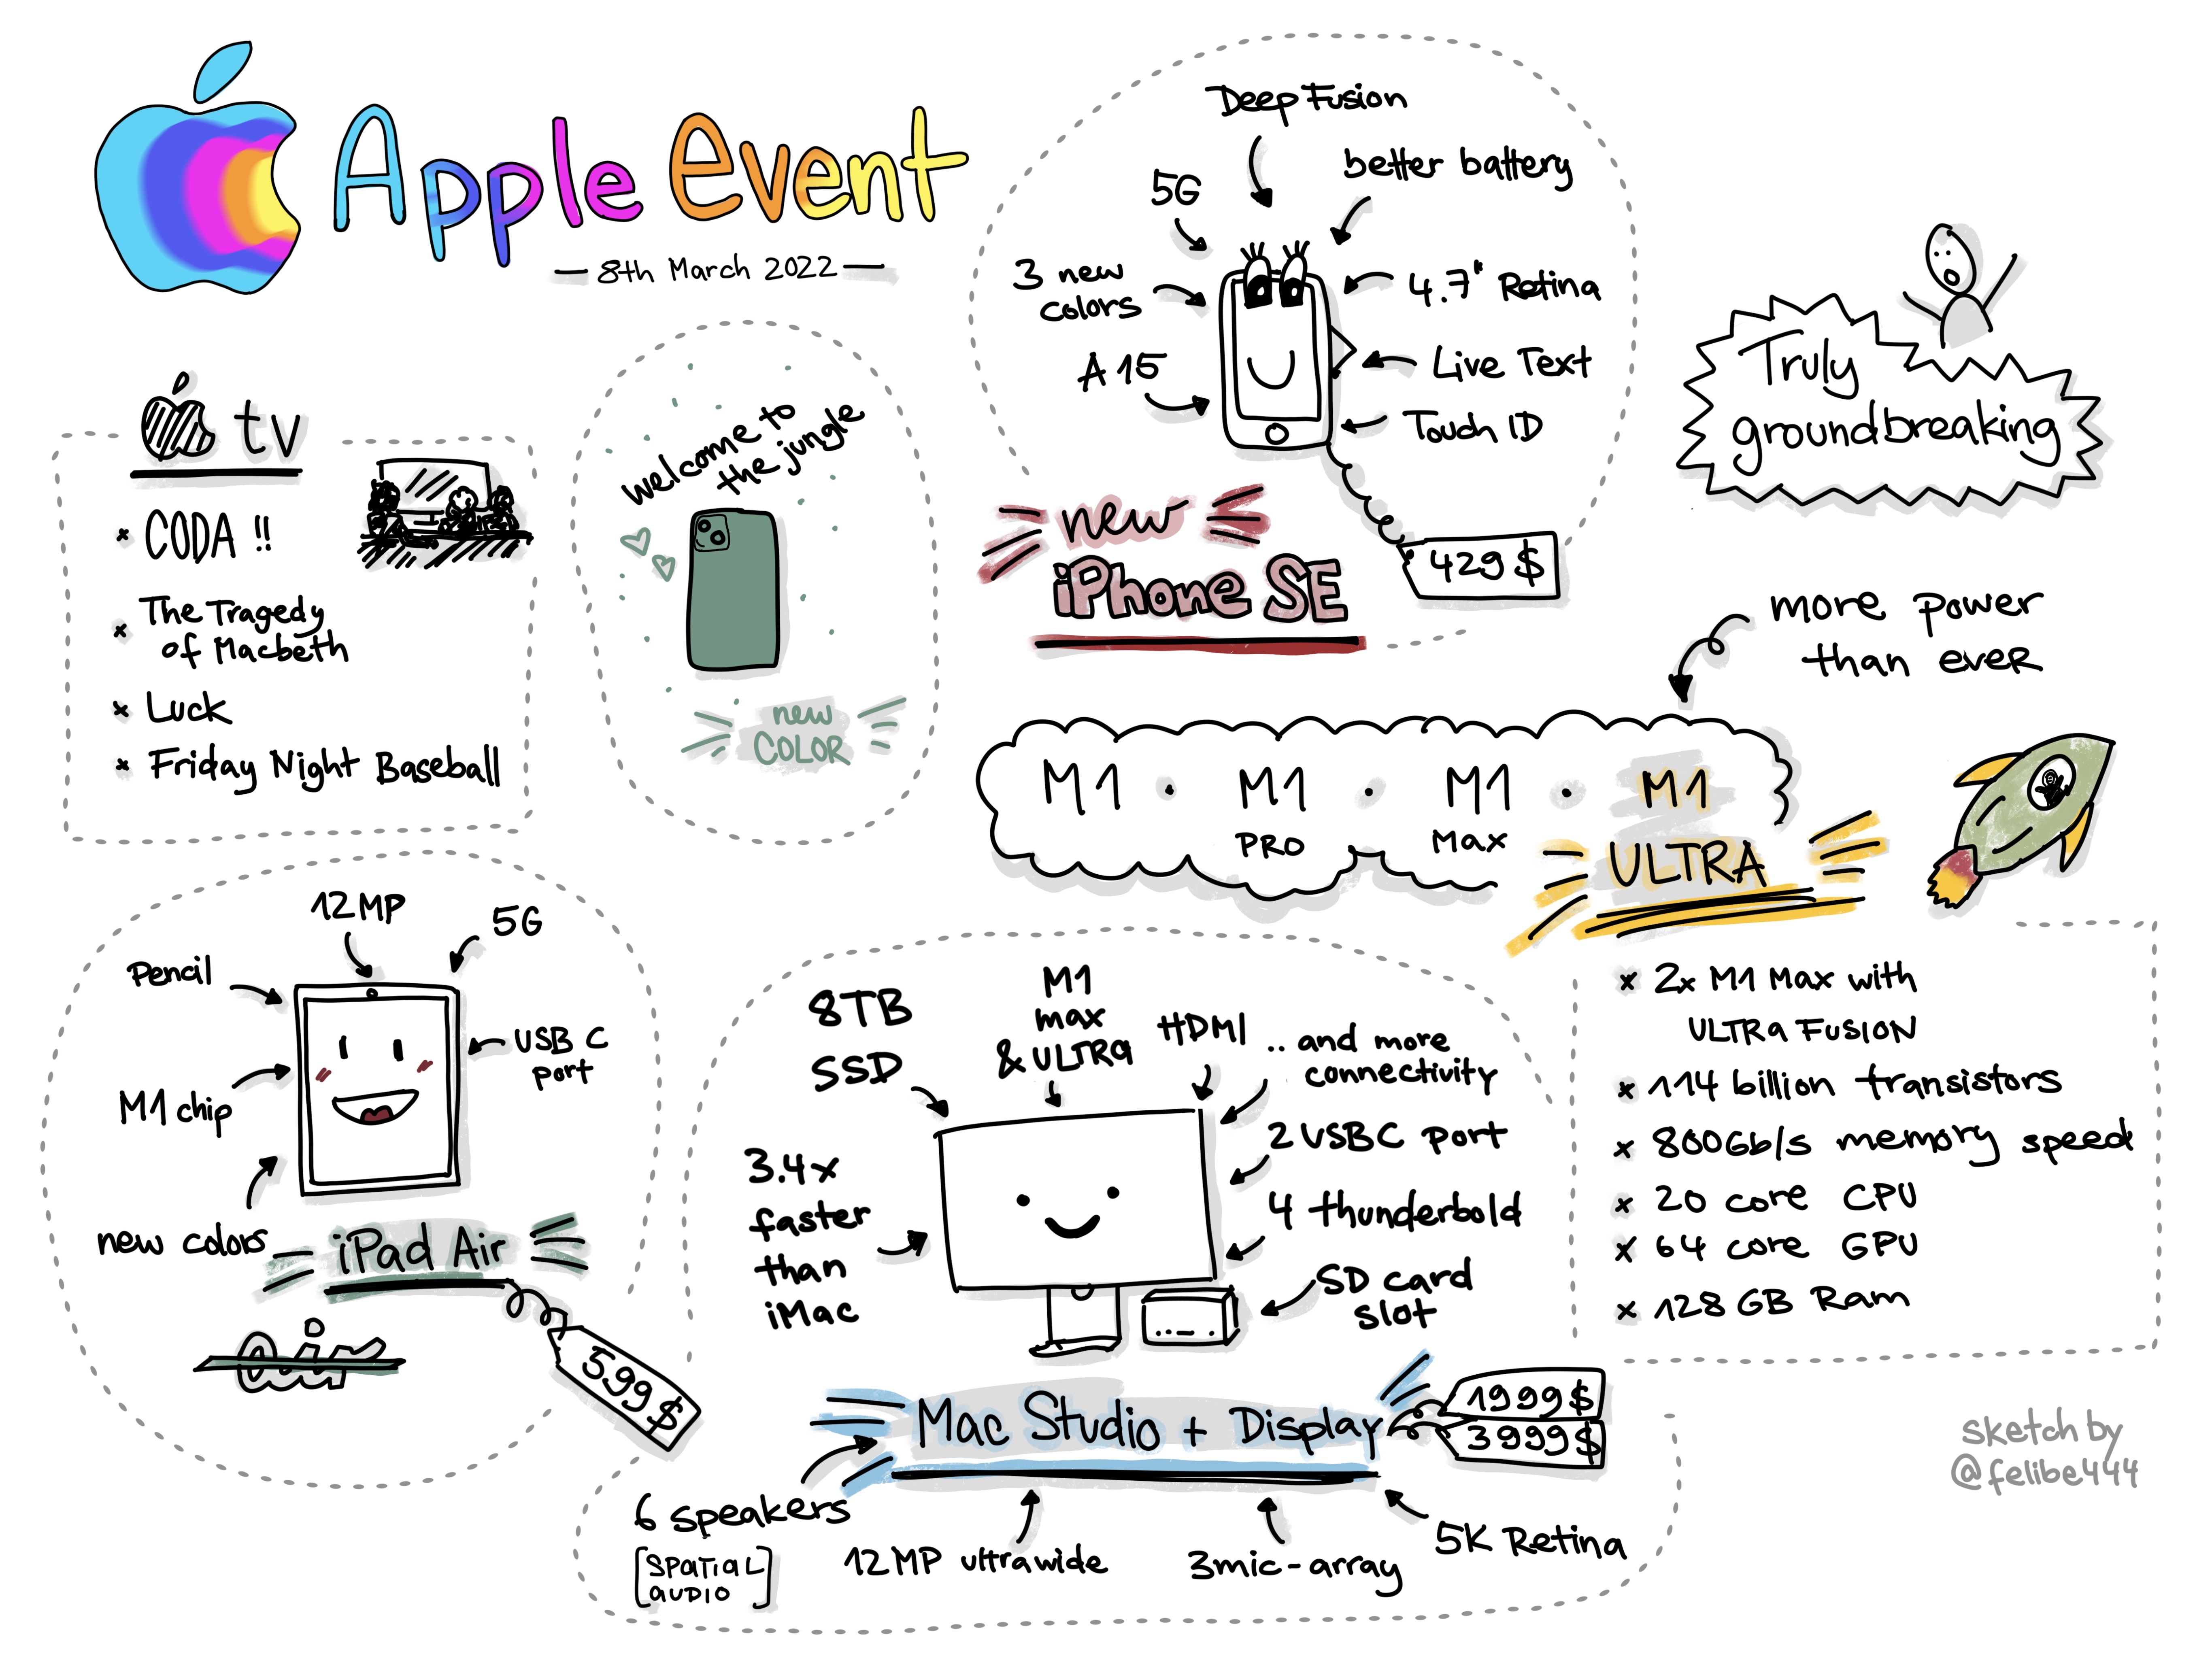 Apple Event
— 8th March 2022 —
tv
x CODA !!
x The Tragedy
of Macbeth
x Luck
x Friday Night Baseball
welcome to
the jungle
new
COLOR
Deep Fusion
5G
better battery
3 new
colors
4.7" Retina
A15
Live Text
Touch ID
new
iPhone SE
429$
Truly
groundbreaking
more power
than ever
M1 · M1 · M1 · M1
PRO
Max
ULTRA
x 2x M1 Max with
ULTRA FUSION
x 114 billion transistors
x 800Gb/s memory speed
x 20 core CPU
x 64 core GPU
x 128 GB Ram
12MP
5G
Pencil
USB C
port
M1 chip
new colors
iPad Air
air
599$
8TB
SSD
M1
max
& ULTRA
HDMI
.. and more
connectivity
2 USBC port
3.4x
faster
than
iMac
4 thunderbold
SD card
slot
Mac Studio + Display
1999$
3999$
6 speakers
[SPATIAL
AUDIO]
12MP ultrawide
3mic-array
5K Retina
sketch by
@felibe444